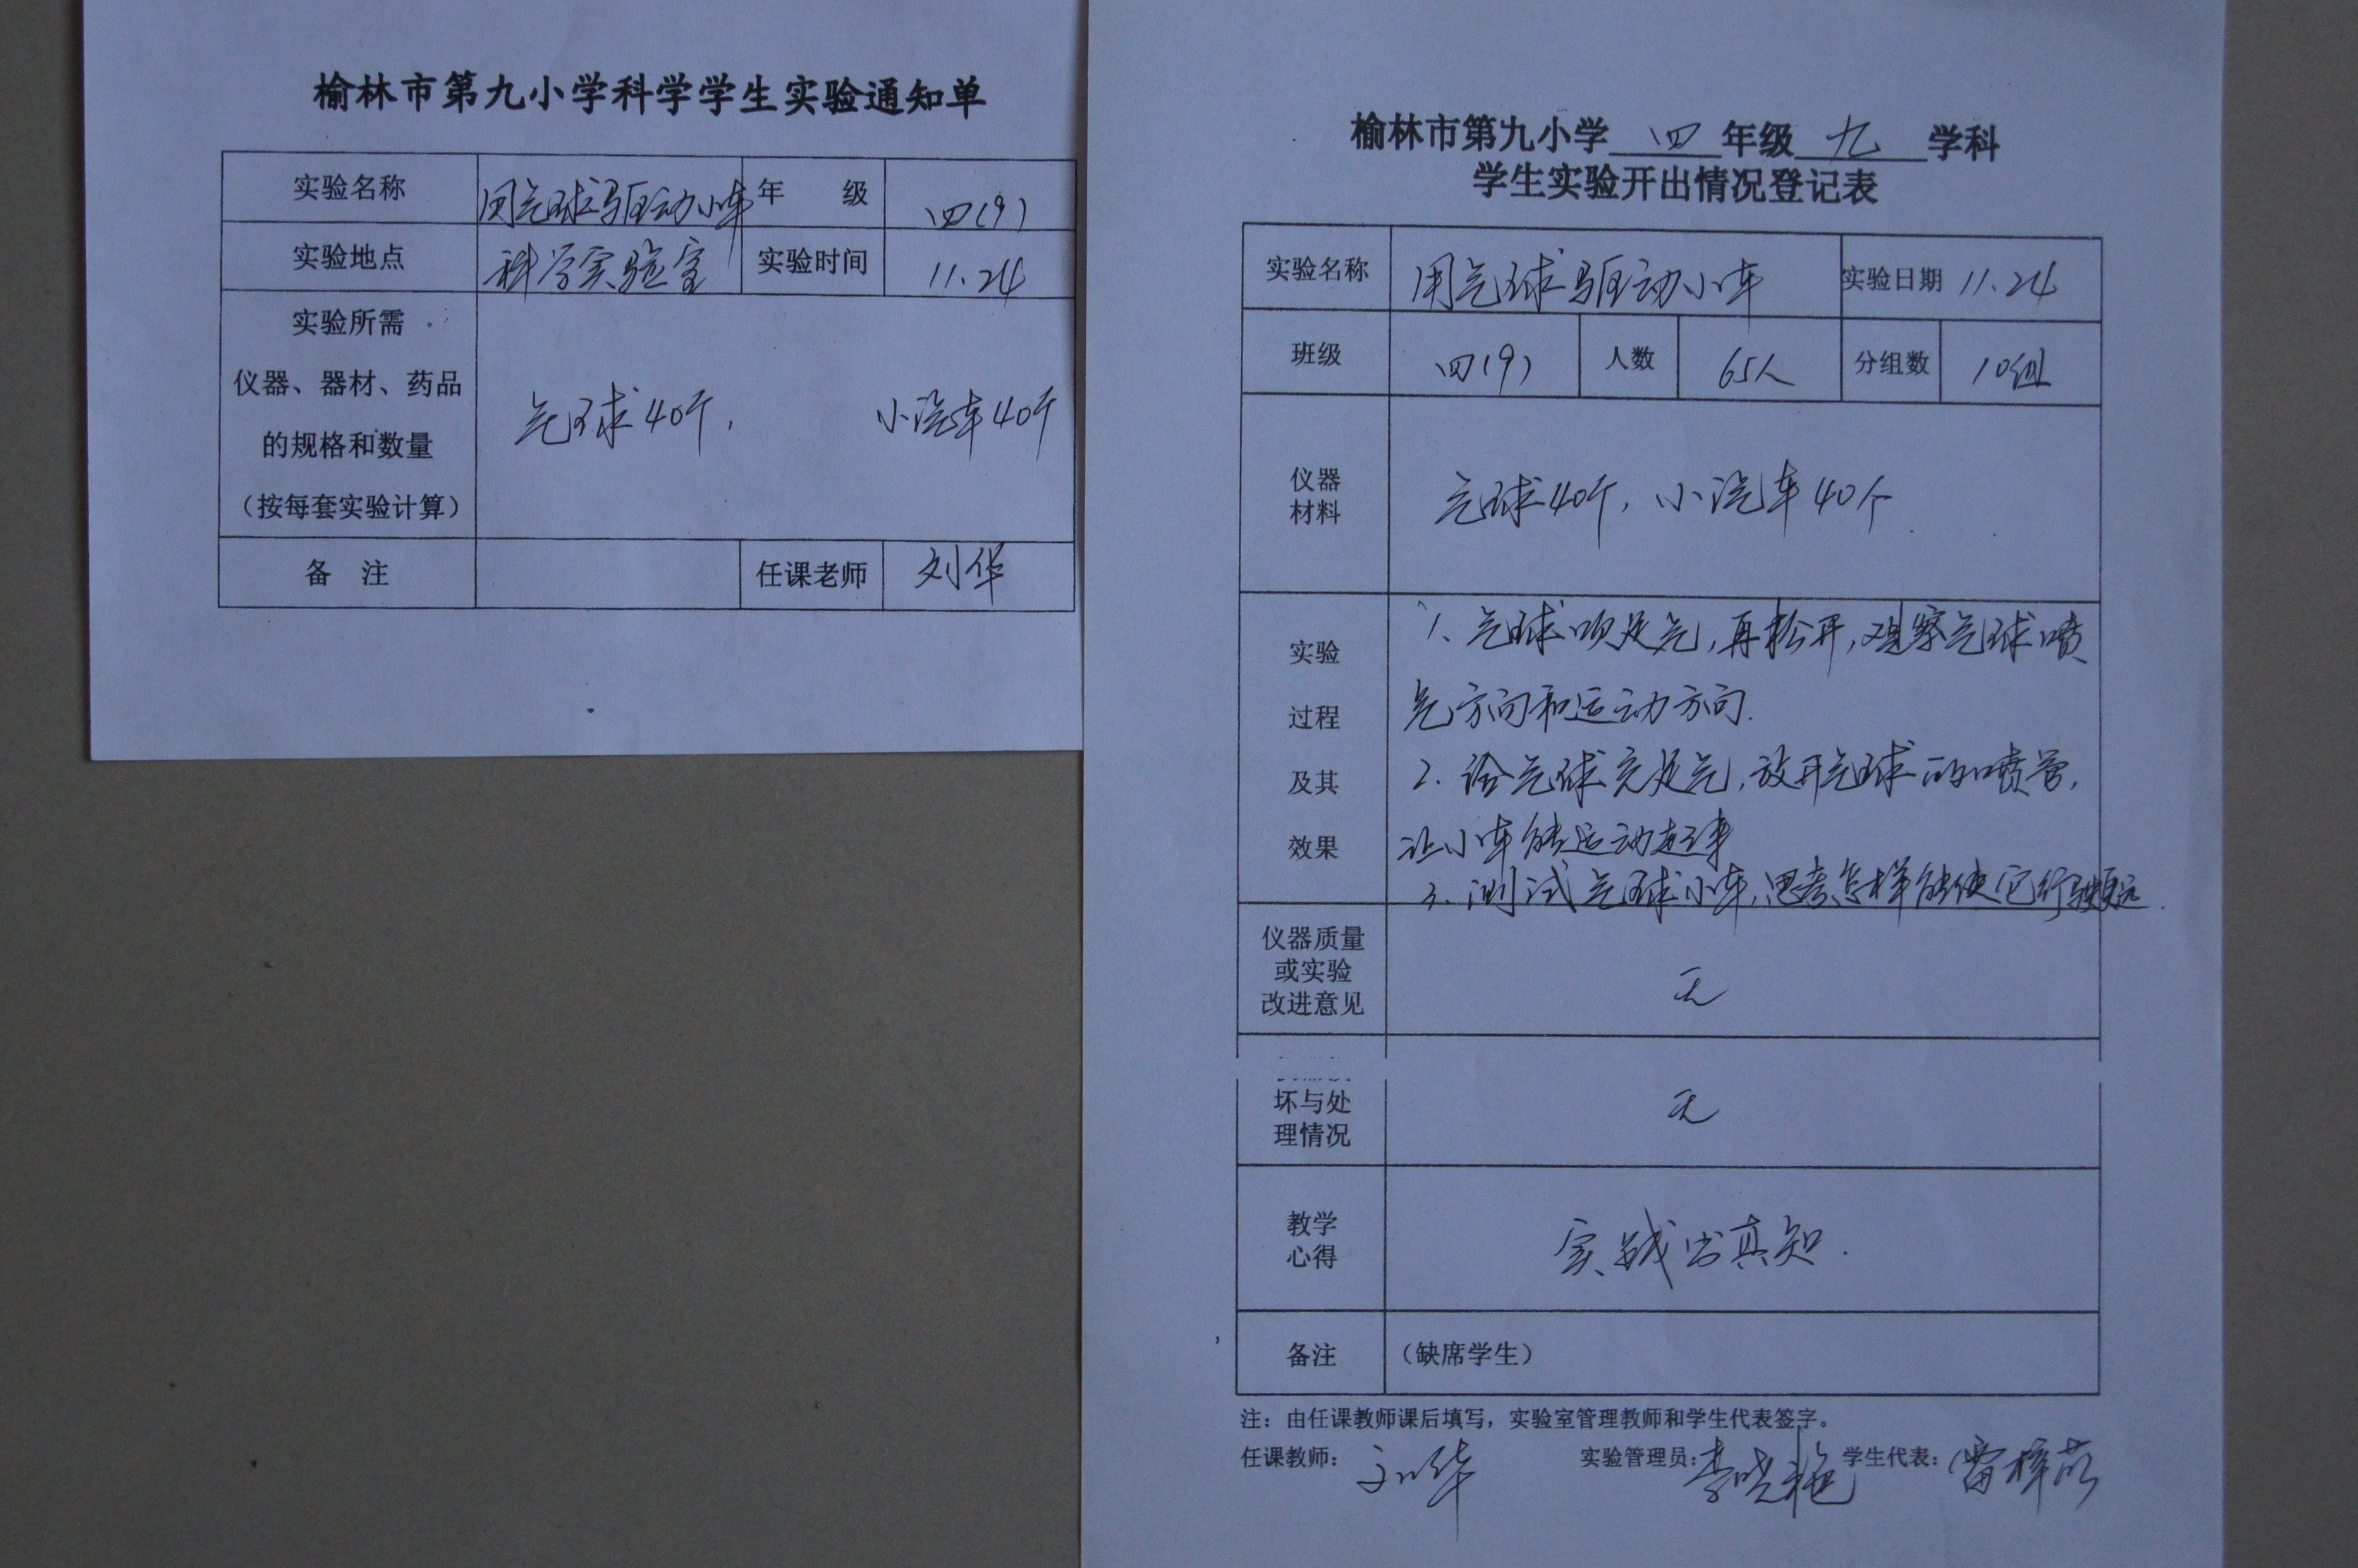 榆林市第九小学科学学生实验通知单
实验名称 用气球驱动小车 年 级 四(9)
实验地点 科学实验室 实验时间 11.24
实验所需
仪器、器材、药品
的规格和数量
(按每套实验计算)
气球40个, 小汽车40个
备 注 任课老师 刘华
榆林市第九小学 四 年级 九 学科
学生实验开出情况登记表
实验名称 用气球驱动小车 实验日期 11.24
班级 四(9) 人数 65人 分组数 10组
仪器
材料
气球40个, 小汽车40个.
实验
过程
及其
效果
1. 气球吹足气,再松开,观察气球喷
气方向和运动方向.
2. 给气球充足气,放开气球的喷管,
让小车能运动起来
3. 测试气球小车,思考怎样能使它行驶更远.
仪器质量
或实验
改进意见
无
坏与处
理情况
无
教学
心得
实践出真知.
备注 (缺席学生)
注:由任课教师课后填写,实验室管理教师和学生代表签字。
任课教师: 刘华 实验管理员: 李晓艳 学生代表: 雷梓